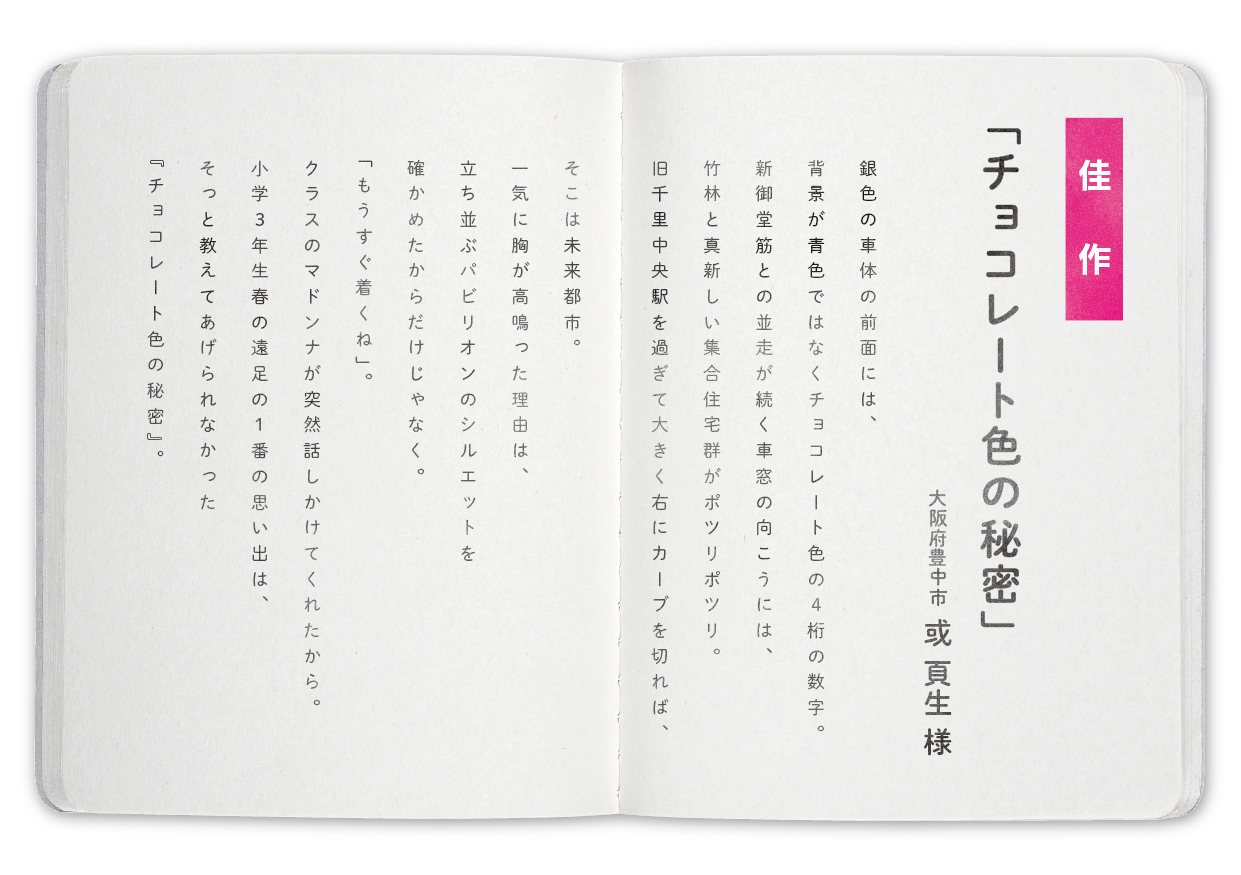 佳作
「チョコレート色の秘密」
大阪府豊中市 或 頁生 様
銀色の車体の前面には、
背景が青色ではなくチョコレート色の4桁の数字。
新御堂筋との並走が続く車窓の向こうには、
竹林と真新しい集合住宅群がポツリポツリ。
旧千里中央駅を過ぎて大きく右にカーブを切れば、
そこは未来都市。
一気に胸が高鳴った理由は、
立ち並ぶパビリオンのシルエットを
確かめたからだけじゃなく。
「もうすぐ着くね」。
クラスのマドンナが突然話しかけてくれたから。
小学3年生春の遠足の1番の思い出は、
そっと教えてあげられなかった
『チョコレート色の秘密』。